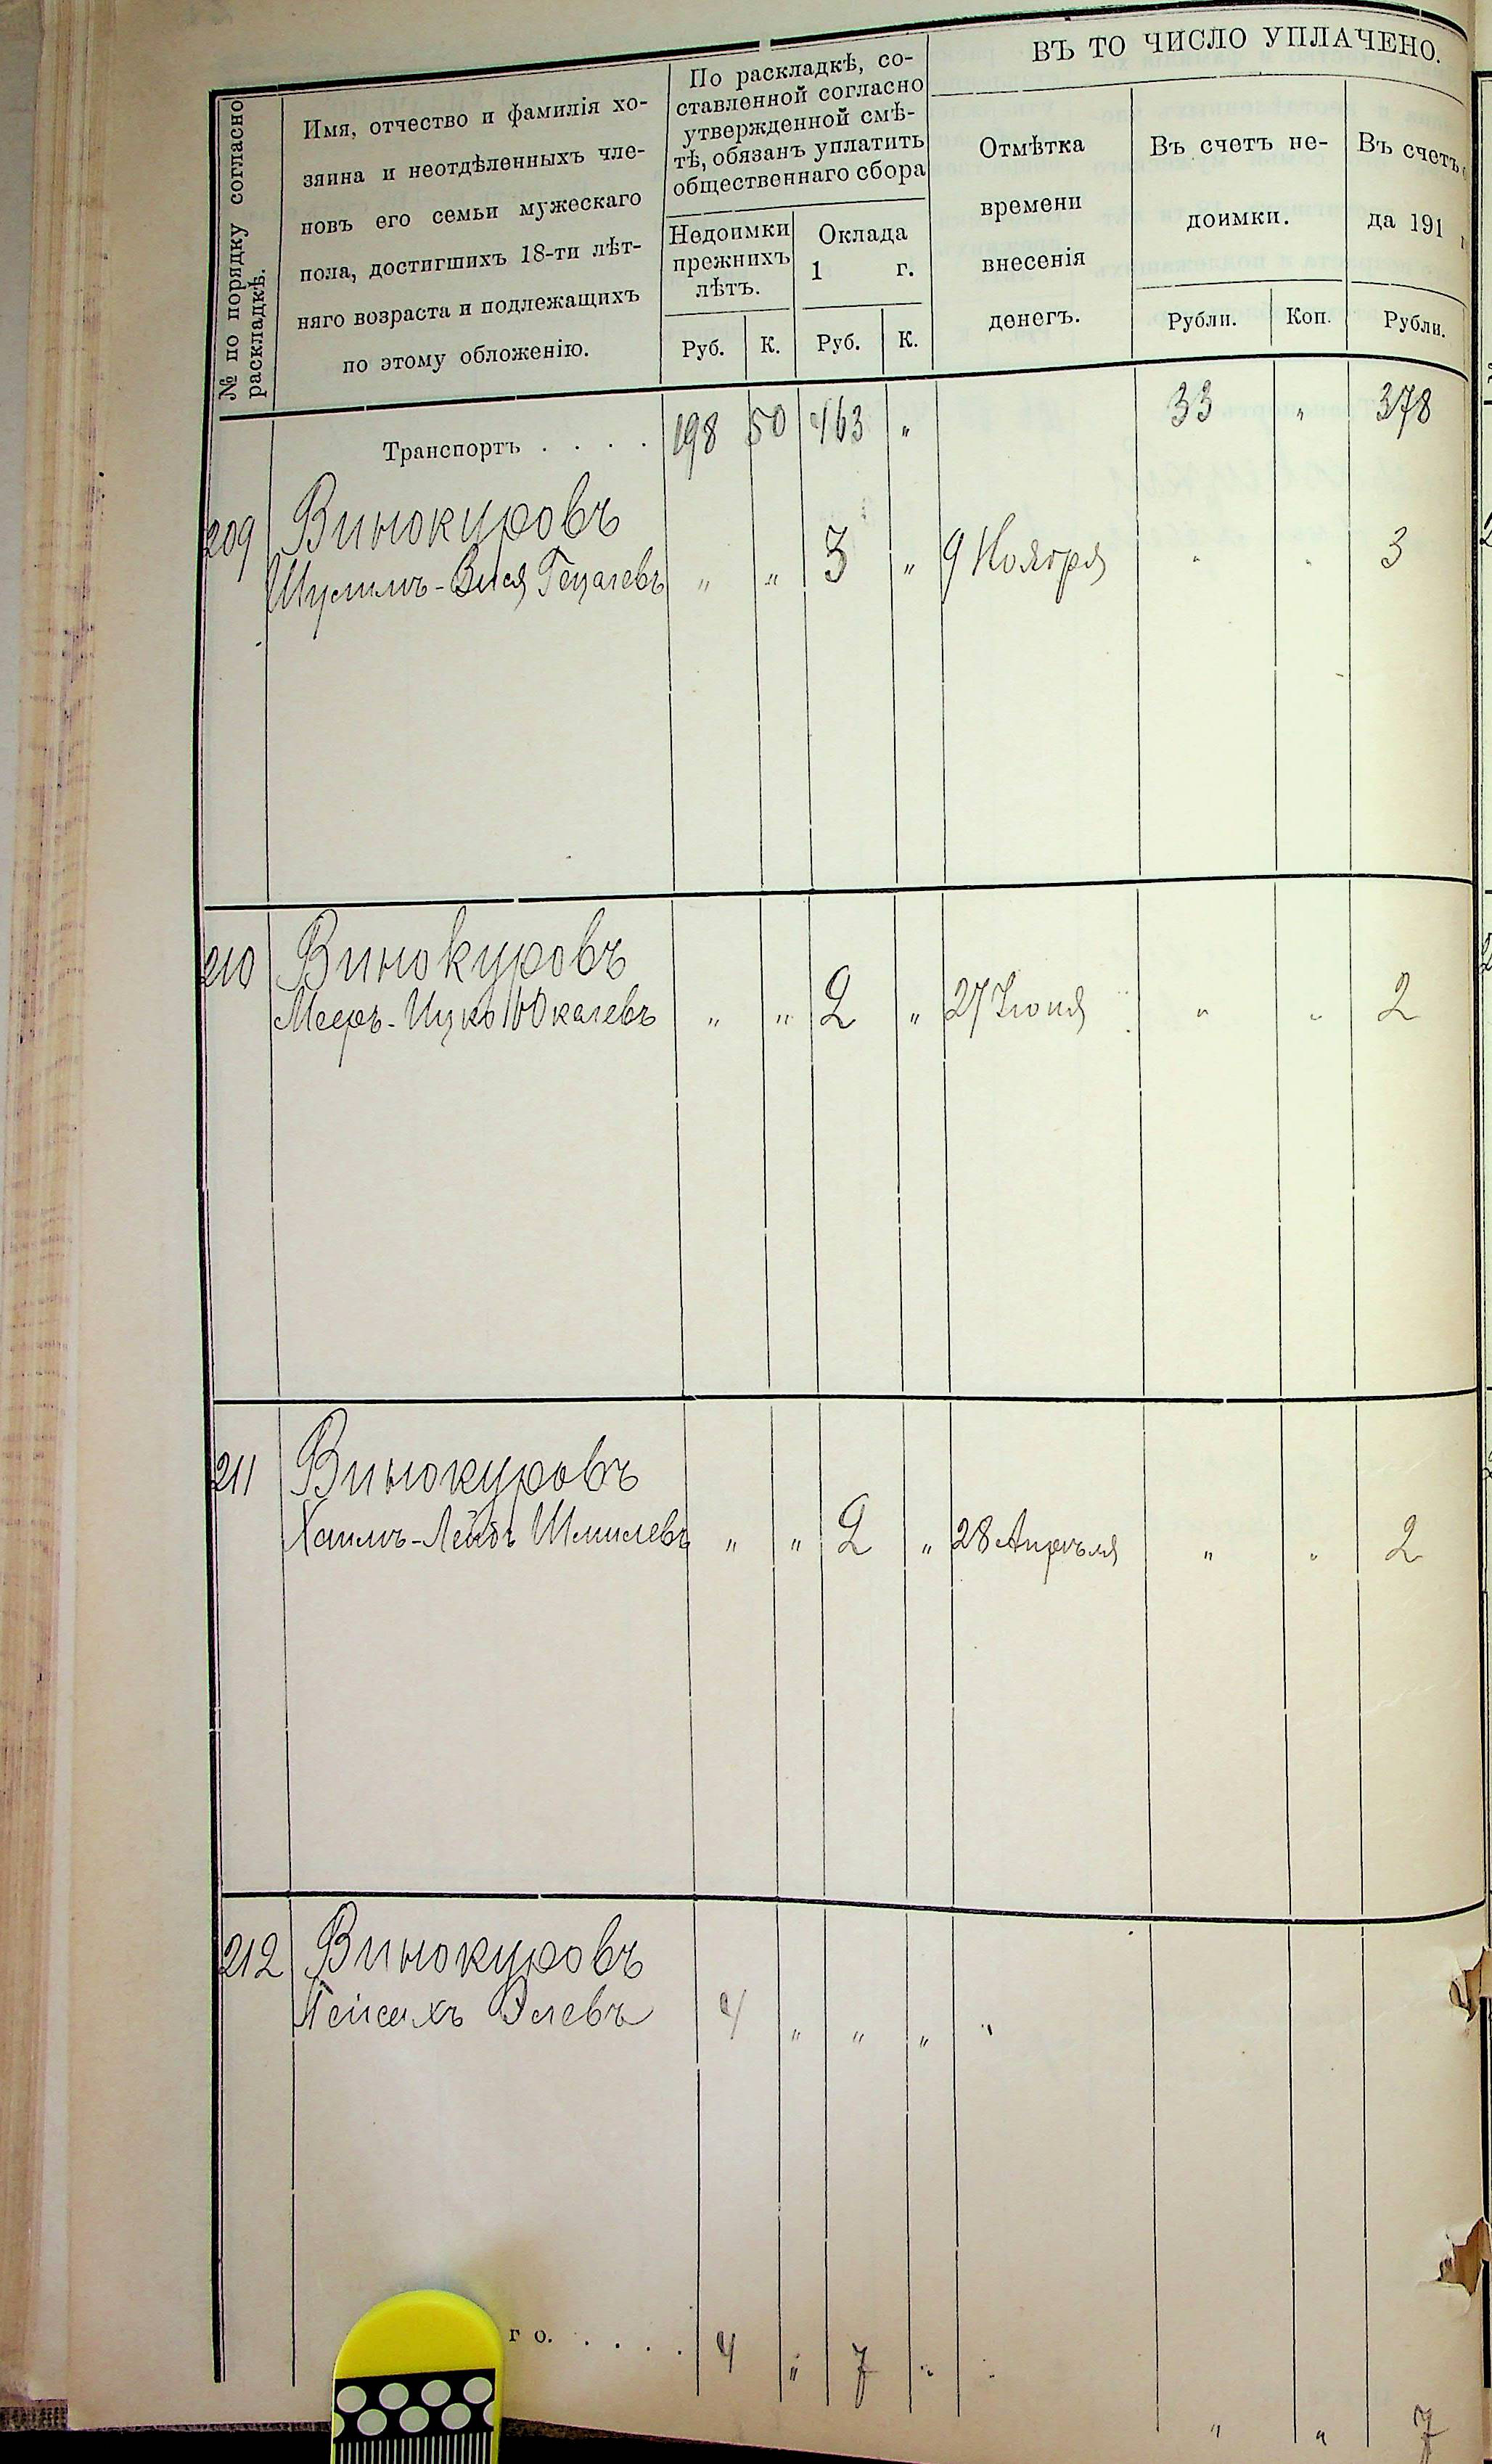 № по порядку согласно
раскладкѣ.
Имя, отчество и фамилія хо-
зяина и неотдѣленныхъ чле-
новъ его семьи мужескаго
пола, достигшихъ 18-ти лѣт-
няго возраста и подлежащихъ
по этому обложенію.
По раскладкѣ, со-
ставленной согласно
утвержденной смѣ-
тѣ, обязанъ уплатить
общественнаго сбора
Недоимки
прежнихъ
лѣтъ.
Оклада
1 г.
Руб. К. Руб. К.
ВЪ ТО ЧИСЛО УПЛАЧЕНО.
Отмѣтка
времени
внесенія
денегъ.
Въ счетъ не-
доимки.
Рубли. Коп.
Въ счетъ
да 191
Рубли.
Транспортъ . . . . 198 50 463 „ 33 „ 378
209 Винокуровъ
„ „ 3 „ 9 Ноября „ „ 3
210 Винокуровъ
Мееръ-Ицко „ „ 2 „ 27 Іюня „ „ 2
211 Винокуровъ
Хаимъ-Лейбъ Шмилевъ „ „ 2 „ 28 Апрѣля „ „ 2
212 Винокуровъ
Пейсахъ Элевъ 4 „ „ „ „
го. . . . . 4 „ 7 „ „ „ „ 7